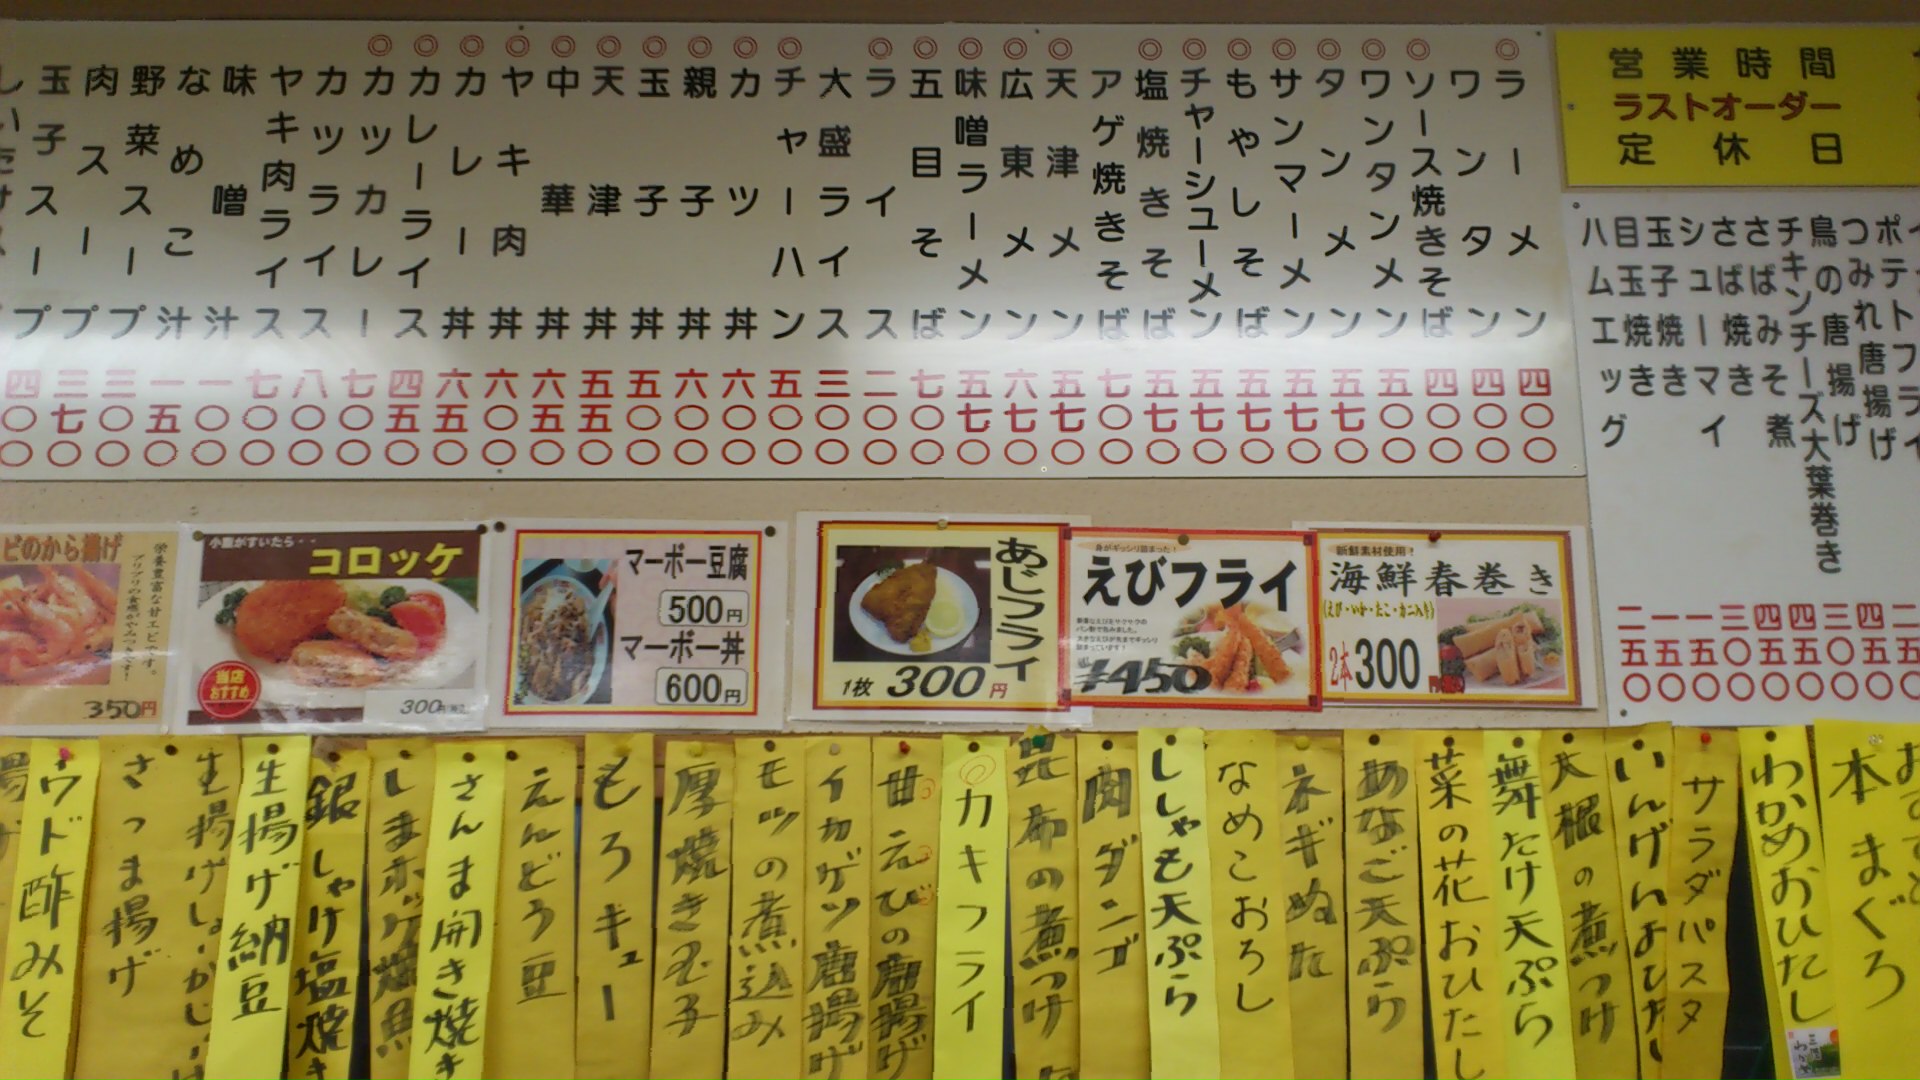 ◎ラーメン 四〇〇
ワンタン 四〇〇
◎ソース焼きそば 四〇〇
◎ワンタンメン 五〇〇
◎タンメン 五七〇
◎サンマーメン 五七〇
◎もやしそば 五七〇
◎チャーシューメン 五七〇
◎塩焼きそば 五七〇
アゲ焼きそば 七〇〇
◎天津メン 五七〇
◎広東メン 六七〇
◎味噌ラーメン 五七〇
◎五目そば 七〇〇
◎ライス 二〇〇
大盛ライス 三〇〇
◎チャーハン 五〇〇
◎カツ丼 六〇〇
◎親子丼 六〇〇
◎玉子丼 五〇〇
◎天津丼 五五〇
◎中華丼 六五〇
◎ヤキ肉丼 六〇〇
◎カレー丼 六五〇
◎カレーライス 四五〇
◎カツカレー 七〇〇
カツライス 八〇〇
ヤキ肉ライス 七〇〇
味噌汁 一〇〇
なめこ汁 一五〇
野菜スープ 三〇〇
肉スープ 三七〇
玉子スープ 四〇〇
営業時間
ラストオーダー
定休日
ポテトフライ
つみれ唐揚げ 二五〇
鳥の唐揚げ 四五〇
チキンチーズ大葉巻き 三〇〇
さばみそ煮 四五〇
さば焼き 四五〇
シューマイ 三〇〇
玉子焼き 一五〇
目玉焼き 一五〇
ハムエッグ 二五〇
ビのから揚げ
栄養豊富な甘エビです。
プリプリの食感がやみつきに!
350円
小腹がすいたら・・
コロッケ
当店
おすすめ
300円
マーボー豆腐
500円
マーボー丼
600円
あじフライ
1枚 300円
身がギッシリ詰まった!
えびフライ
¥450
新鮮素材使用!
海鮮春巻き
(えび・いか・たこ・カニ入り)
2本 300
本まぐろ
わかめおひたし
サラダパスタ
いんげんおひたし
大根の煮つけ
舞たけ天ぷら
菜の花おひたし
あなご天ぷら
ネギぬた
なめこおろし
ししゃも天ぷら
肉ダンゴ
昆布の煮つけ
◎カキフライ
甘えびの唐揚げ
イカゲソ唐揚げ
モツの煮込み
厚焼き玉子
もろキュー
えんどう豆
さんま開き焼き
しまホッケ焼魚
銀しゃけ塩焼き
生揚げ納豆
生揚げしょーがじょーゆ
さつま揚げ
ウド酢みそ